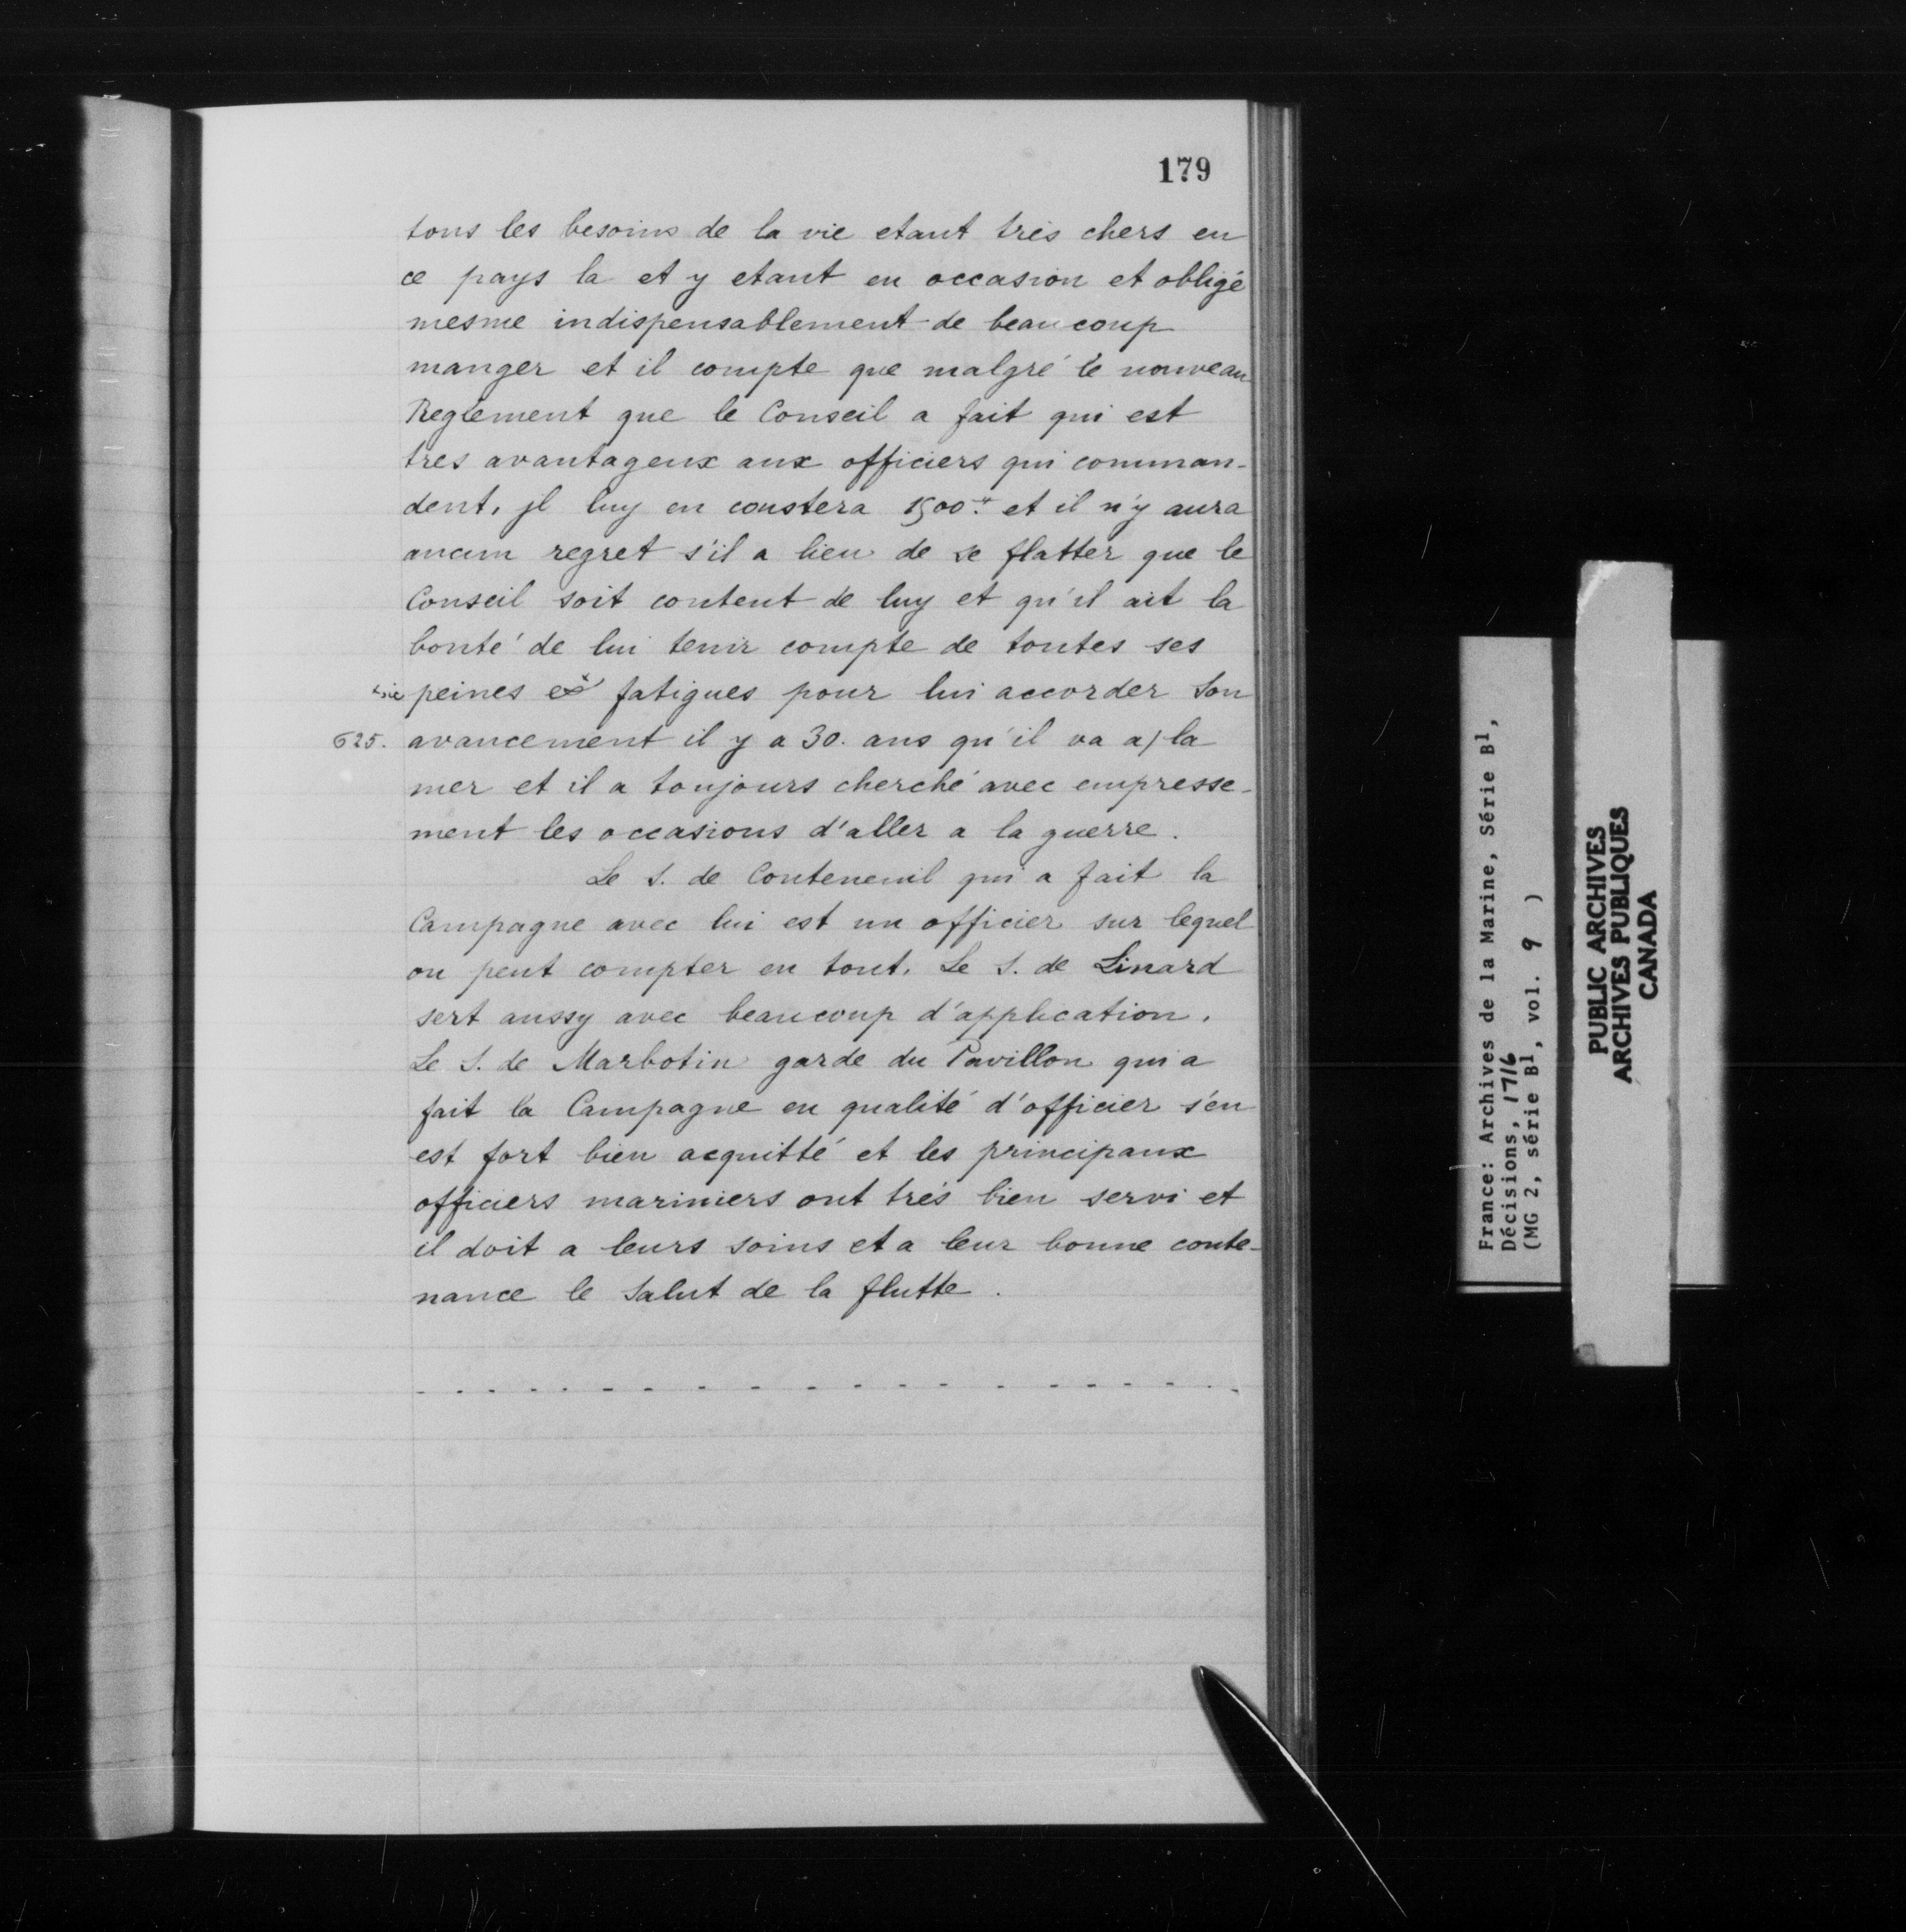 179
tous les besoins de la vie etant trés chers en
ce pays la et y etant en occasion et obligé
mesme indispensablement de beaucoup
manger et il compte que malgré le nouveau
Reglement que le Conseil a fait qui est
tres avantageux aux officiers qui comman-
dent, jl luy en coustera 1500.# et il n'y aura
aucun regret s'il a lieu de se flatter que le
Conseil soit content de luy et qu'il ait la
bonté de lui tenir compte de toutes ses
peines et fatigues pour lui accorder son
625. avancement il y a 30. ans qu'il va a/ la
mer et il a toujours cherché avec empresse-
ment les occasions d'aller a la guerre.
Le S. de Conteneuil qui a fait la
Campagne avec lui est un officier sur lequel
on peut compter en tout. Le S. de Linard
sert aussy avec beaucoup d'application.
Le S. de Marbotin garde du Pavillon qui a
fait la Campagne en qualité d'officier s'en
est fort bien acquitté et les principaux
officiers mariniers ont trés bien servi et
il doit a leurs soins et a leur bonne conte-
nance le salut de la flutte.
France: Archives de la Marine, Série B1,
Décisions, 1716
(MG 2, série B1, vol. 9 )
PUBLIC ARCHIVES
ARCHIVES PUBLIQUES
CANADA